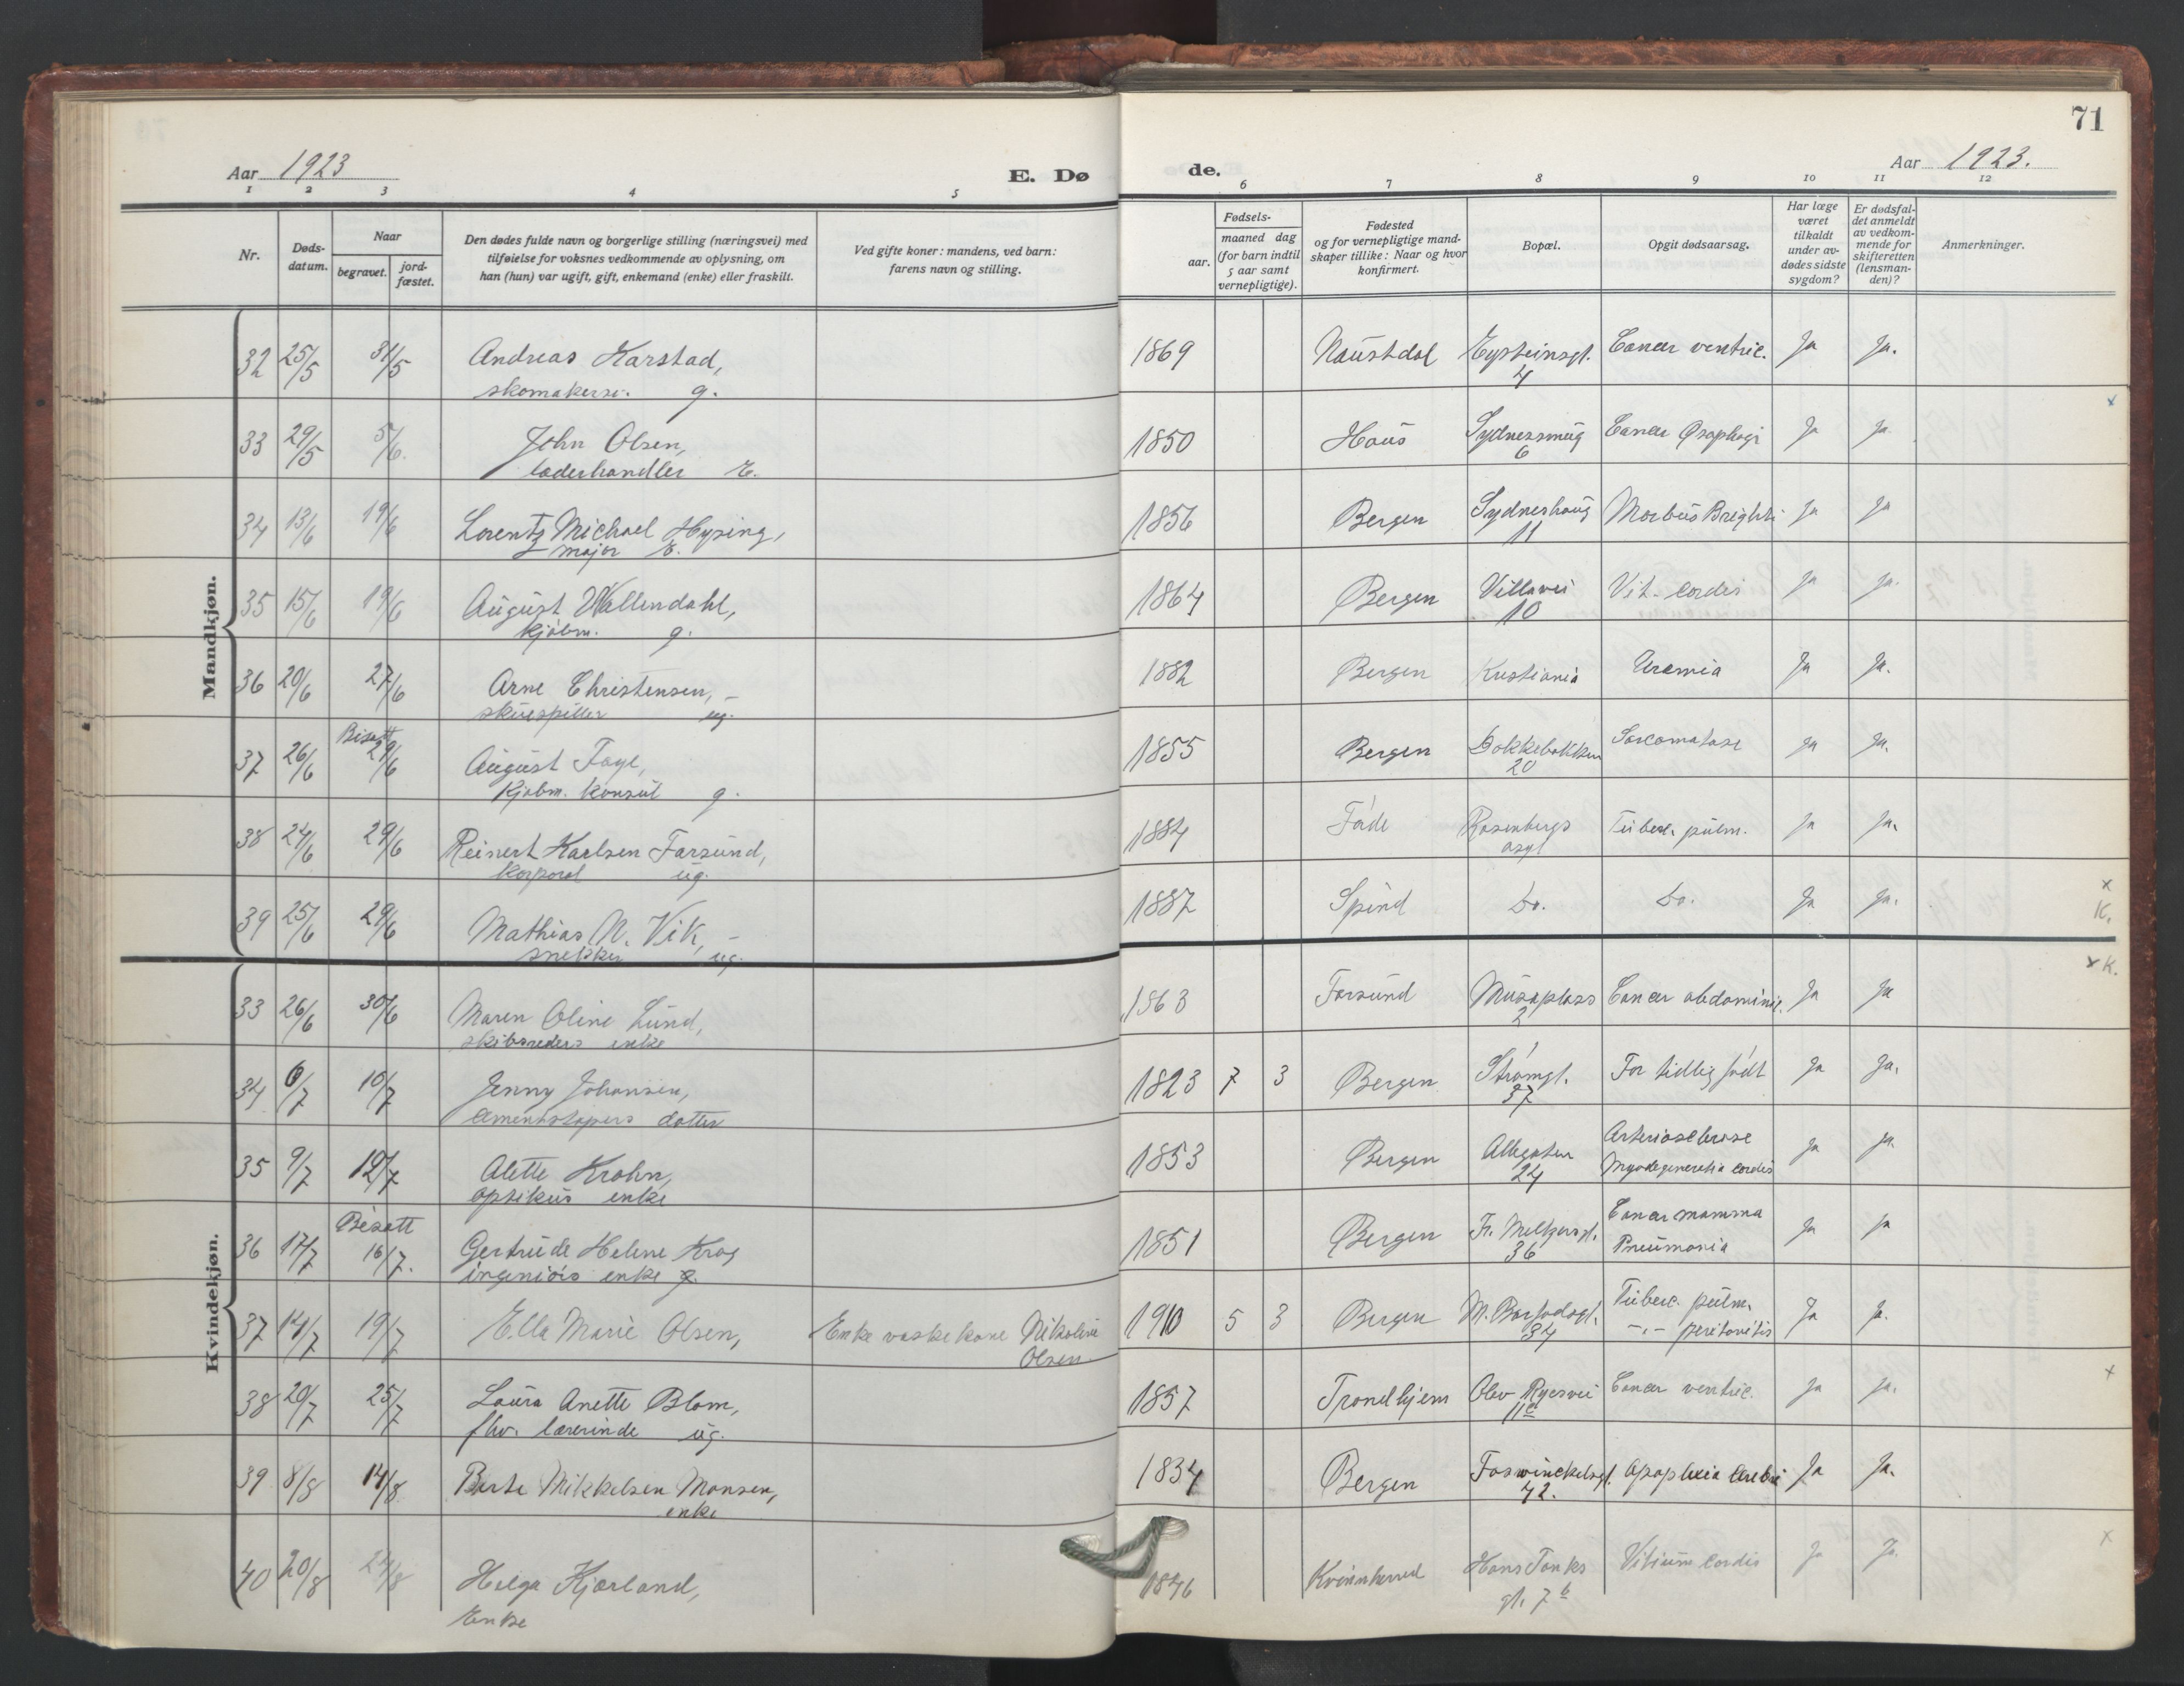 71
Aar 1923 E. Dø de. Aar 1923.
1 2 3 4 5 6 7 8 9 10 11 12
Nr.
Døds-
datum.
Naar
begravet.
jord-
fæstet.
Den dødes fulde navn og borgerlige stilling (næringsvei) med
tilføielse for voksnes vedkommende av oplysning, om
han (hun) var ugift, gift, enkemand (enke) eller fraskilt.
Ved gifte koner: mandens, ved barn:
farens navn og stilling.
aar.
Fødsels-
maaned dag
(for barn indtil
5 aar samt
vernepligtige).
Fødested
og for vernepligtige mand-
skaper tillike: Naar og hvor
konfirmert.
Bopæl.
Opgit dødsaarsag.
Har læge
været
tilkaldt
under av-
dødes sidste
sygdom?
Er dødsfal-
det anmeldt
av vedkom-
mende for
skifteretten
(lensman-
den)?
Anmerkninger.
Mandkjøn.
32 25/5 31/5 Andreas Karstad, 1869 Naustdal Eysteinsgt. Cancer ventric. Ja Ja.
skomakersv. g. 4
33 29/5 5/6. John Olsen, 1850 Haus Sydnessmug Cancer Øsophagi Ja Ja x
læderhandler E. 6
34 13/6 19/6 Lorentz Michael Hysing, 1856 Bergen Sydneshaug Morbus Brightii Ja Ja
major E. 11
35 15/6 19/6 August Wallendahl, 1864 Bergen Villavei Vit. cordis Ja Ja.
kjøbm. g. 10
36 20/6 27/6 Arne Christensen, 1882 Bergen Kristiania Uremia Ja Ja.
skuespiller ug.
Bisatt
37 26/6 29/6 August Faye, 1855 Bergen Dokkebakken Sarcomatose Ja Ja.
kjøbm. konsul g. 20
38 24/6 29/6 Reinert Karlsen Farsund, 1884 Rosenbergs Tuberc. pulm. Ja Ja.
korporal ug. asyl
39 25/6 29/6 Mathias N. Vik, 1887 Spind Do. Do. Ja Ja. x K.
snekker ug.
Kvindekjøn.
33 26/6 30/6 Maren Oline Lund, 1863 Farsund Musæplass Cancer abdominic. Ja Ja x K.
skibsreders enke 2
34 6/7 10/7 Jenny Johansen, 1823 7 3 Bergen Strømgt. For tidlig født Ja Ja.
cementstøpers datter 37
35 9/7 12/7 Alette Krohn, 1853 Bergen Allegaten Arteriosclerose Ja Ja.
optikus enke 24 Myodegeneratio cordis
Bisatt
36 17/7 16/7. Gertrude Helene Krog 1851 Bergen Fr. Meltzersgt. Cancer mamma Ja Ja
ingeniørs enke 36 Pneumonia
37 14/7 19/7 Ella Marie Olsen, Enke vaskekone Nikoline 1910 5 3 Bergen 34 Tuberc. pulm. Ja Ja.
Olsen. -"- peritonitis
38 20/7 25/7 Laura Anette Blom, 1857 Trondhjem Olav Ryesvei Cancer ventric. Ja Ja. x
fhv. lærerinde ug. 11c
39 8/8 14/8 Berte Mikkelsen Monsen, 1834 Bergen Foswinckelsgt. Apoplexia cerebri Ja Ja.
enke 42.
40 20/8 24/8 Helga Kjærland, 1846 Kvinnherred Hans Tanks Vitium cordis Ja Ja. x
Enke gt. 7b